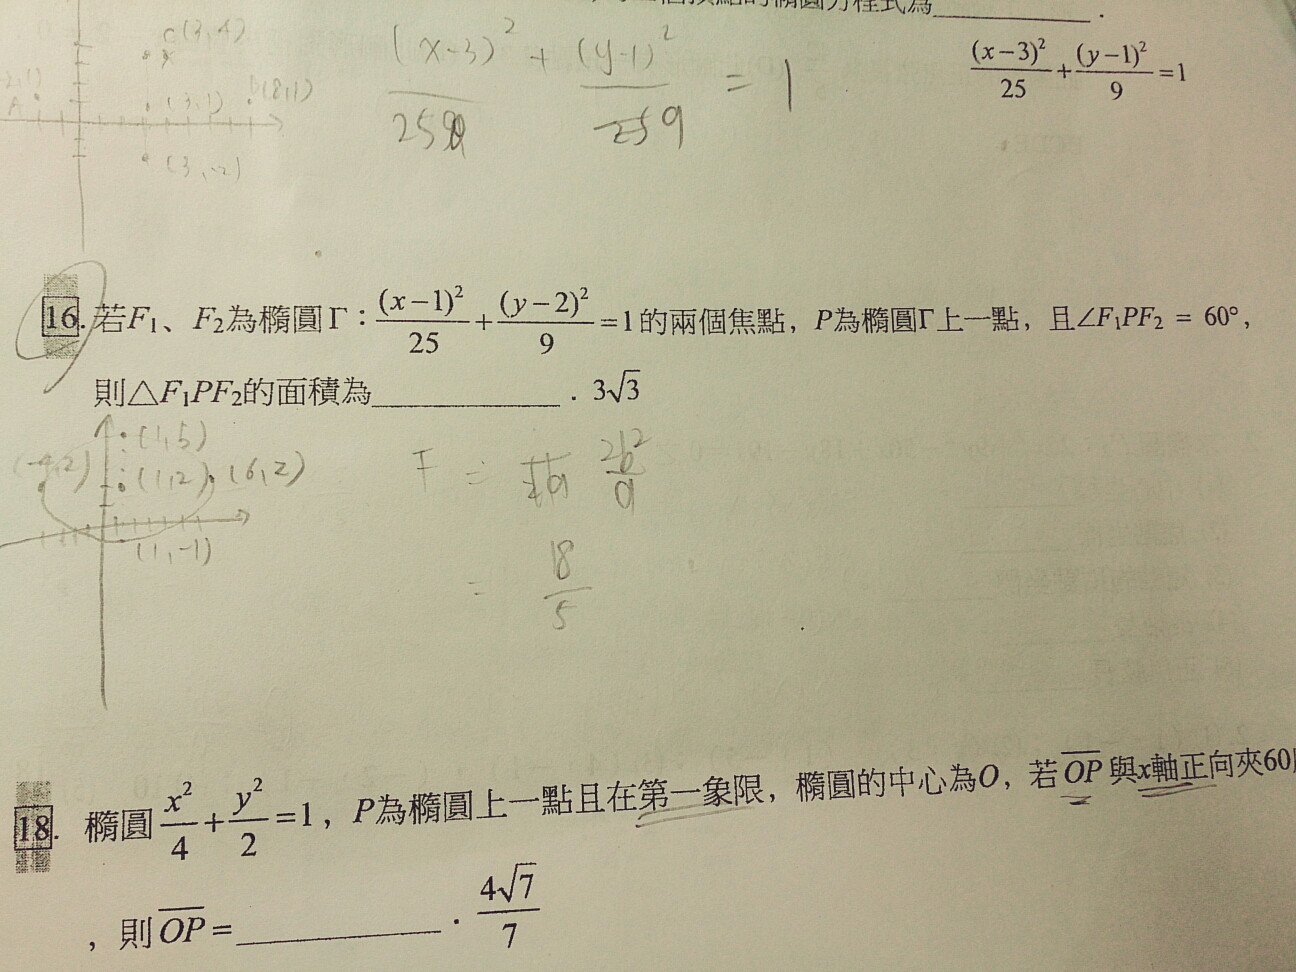 橢圓方程式為________.
(x-3)²/25 + (y-1)²/9 = 1
C(3,4)
(3,1)
B(8,1)
A
(3,-2)
(x-3)²/25 + (y-1)²/9 = 1
16. 若F₁、F₂為橢圓Γ：(x-1)²/25 + (y-2)²/9 = 1的兩個焦點，P為橢圓Γ上一點，且∠F₁PF₂ = 60°，
則△F₁PF₂的面積為________. 3√3
(1,5)
(-4,2)
(1,2)
(6,2)
(1,-1)
= 2b²/a
= 18/5
18. 橢圓 x²/4 + y²/2 = 1，P為橢圓上一點且在第一象限，橢圓的中心為O，若OP與x軸正向夾60
，則OP = ________. 4√7/7